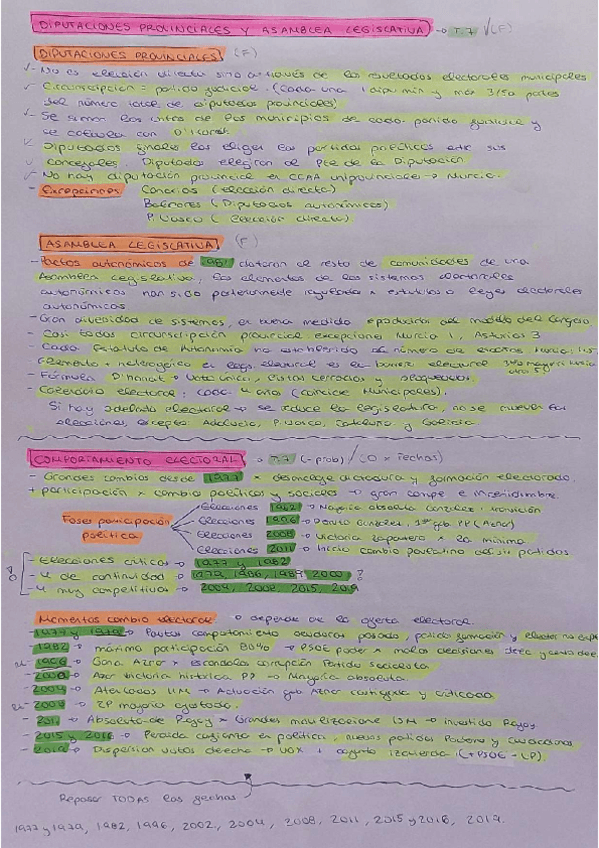 DIPUTACIONES PROVINCIALES Y ASAMBLEA LEGISLATIVA → T.7 (F)
DIPUTACIONES PROVINCIALES (F)
- No es elección directa sino a través de los resultados electorales municipales
- Circunscripción = partido judicial. (Cada uno 1 dipu mín y máx 3/5a partes
del número total de diputados provinciales)
- Se suman los votos de los municipios de cada partido judicial y
se calcula con D'Hondt.
- Diputados los eligen los partidos políticos entre sus
concejales. Diputados elegirán al Pte de la Diputación
- No hay diputación provincial en CCAA uniprovinciales → Murcia.
- Excepciones Canarias (elección directa)
Baleares (Diputados autonómicos)
P. Vasco (Elección directa)
ASAMBLEA LEGISLATIVA (F)
- Pactos autonómicos de 1981 dotaron al resto de comunidades de una
Asamblea Legislativa, los elementos de los sistemas electorales
autonómicos han sido posteriormente regulados x estatutos o leyes electorales
autonómicas
- Gran diversidad de sistemas, en buena medida del modelo del Congreso.
- Casi todas circunscripción provincial excepciones Murcia 1, Asturias 3
- Cada Estatuto de Autonomía ha establecido el número de escaños Murcia: 45
- Elemento + heterogéneo en legs. electoral es la barrera electoral
- Fórmula D'Hondt → voto único, listas cerradas y bloqueadas.
- Calendario electoral: cada 4 años (coincide Municipales).
Si hay adelanto electoral → se reduce la legislatura, no se mueven las
elecciones, excepto: Andalucía, P. Vasco, Cataluña y Galicia
COMPORTAMIENTO ELECTORAL → T.7 (-prob) / (O x fechas)
- Grandes cambios desde 1977 x desenlace dictadura y formación electorado.
+ participación x cambio políticos y sociales → gran compe e incertidumbre.
Fases participación política
Elecciones 1982 → Mayoría absoluta González: transición
Elecciones 1996 → Derrota González, 1er gob PP (Aznar)
Elecciones 2008 → Victoria Zapatero x la mínima
Elecciones 2011 → Inicio cambio paulatino del sis. partidos.
- Elecciones críticas → 1977 y 1982
- " de continuidad → 1979, 1986, 1989, 2000?
- " muy competitivas → 2004, 2008, 2015, 2019
Momentos cambio electoral → depende de la oferta electoral.
- 1977 y 1979 → Pautas comportamiento dictadura pasada, partido formación y
- 1982 → máxima participación 80% → PSOE poder x malas decisiones
- 1996 → Gana Aznar x escándalos corrupción Partido Socialista.
- 2000 → Aznar victoria histórica PP → Mayoría absoluta.
- 2004 → Atentados 11M → Actuación gob Aznar castigada y criticada
- 2008 → ZP mayoría ajustada.
- 2011 → Absoluta de Rajoy x Grandes movilizaciones 15M → investido Rajoy
- 2015 y 2016 → Perdida confianza en política, nuevos partidos Podemos y Ciudadanos
- 2019 → Dispersión votos derecha → VOX + izquierda (+PSOE - UP).
Repasar TODAS las fechas
1977 y 1979, 1982, 1996, 2002, 2004, 2008, 2011, 2015 y 2016, 2019.